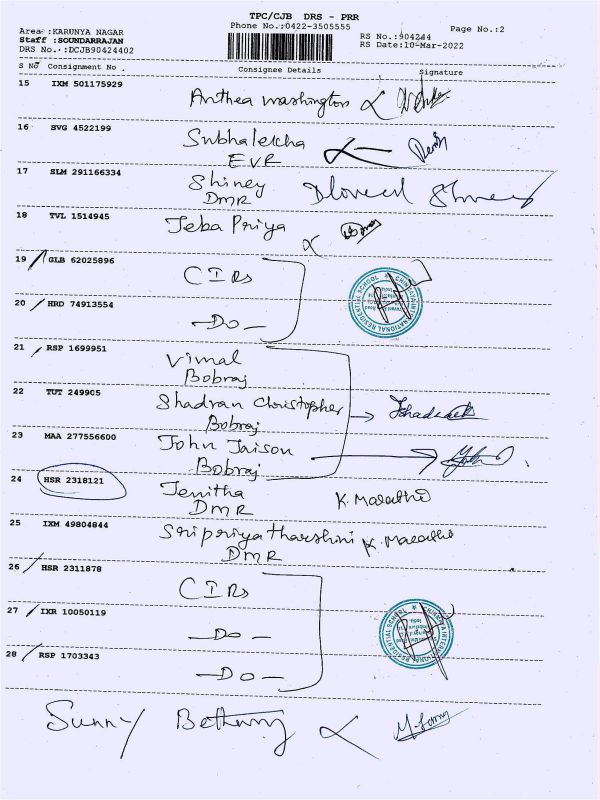 TPC/CJB DRS - PRR
Phone No.:0422-3505555
Area :KARUNYA NAGAR
Staff :SOUNDARRAJAN
DRS No.:DCJB90424402
RS No.:904244
RS Date:10-Mar-2022
Page No.:2
S No Consignment No. Consignee Details Signature
15 IXM 501175929 Anthea Washington
16 SVG 4522199 Subhalekha
EVR
17 SLM 291166334 Shiney
DMR
18 TVL 1514945 Jeba Priya
19 GLB 62025896 CIRs
20 HRD 74913554 -Do-
21 RSP 1699951 Vimal
Bobraj
22 TUT 249905 Shadran Christopher
Bobraj
23 MAA 277556600 John Jaison
Bobraj
24 HSR 2318121 Jenitha K. Marathi
DMR
25 IXM 49804844 Sripriyatharshini K. Marathi
DMR
26 HSR 2311878 CIRs
27 IXR 10050119 -Do-
28 RSP 1703343 -Do-
Sunny Bethany